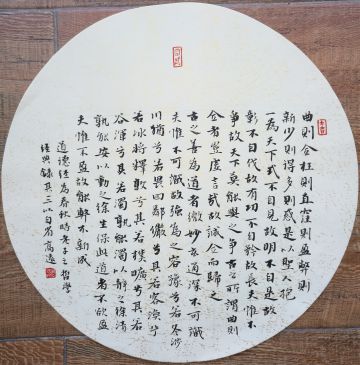 曲則全枉則直窪則盈弊則
新少則得多則惑是以聖人抱
一為天下式不自見故明不自是故
彰不自伐故有功不自矜故長夫惟不
爭故天下莫能與之爭古之所謂曲則
全者豈虛言哉故誠全而歸之
古之善為道者微妙玄通深不可識
夫惟不可識故強為之容豫兮若冬涉
川猶兮若畏四鄰儼兮其若客渙兮
若冰將釋敦兮其若樸曠兮其若
谷渾兮其若濁孰能濁以靜之徐清
孰能安以動之徐生保此道者不欲盈
夫惟不盈故能弊不新成
道德經為春秋時老子之哲學
經典錄其三以自省高遠